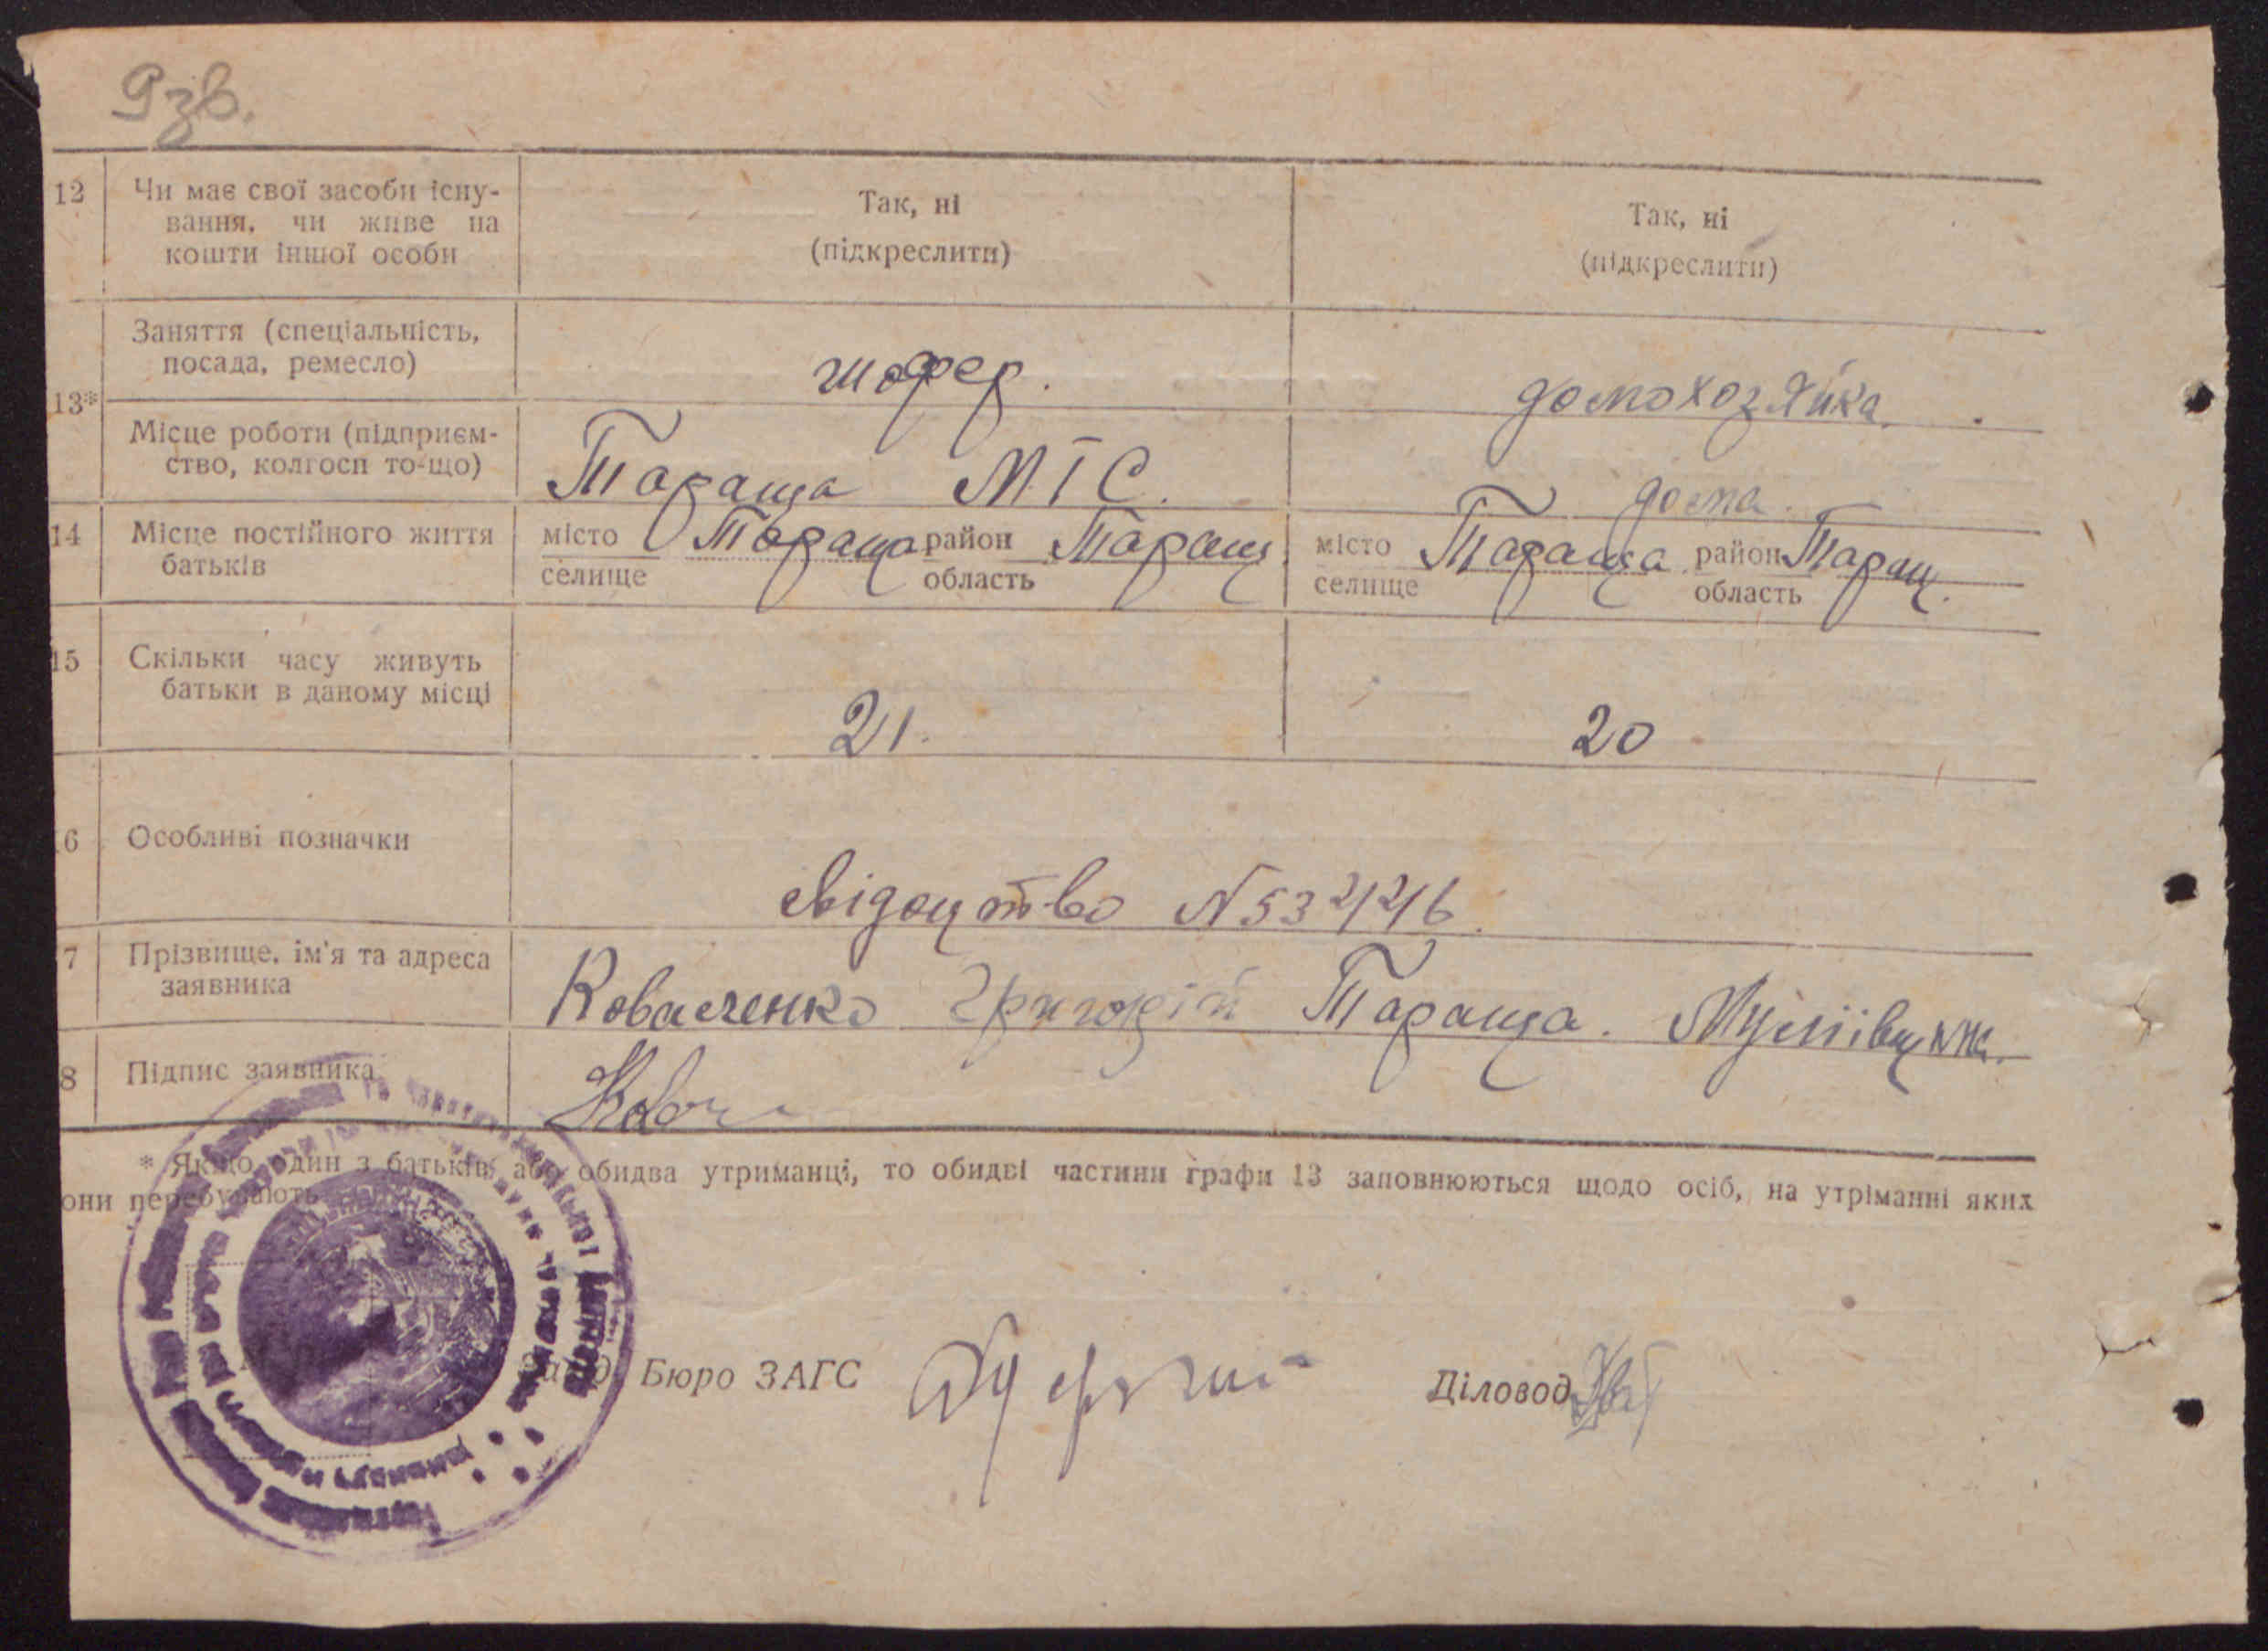 9 зв.
12 Чи має свої засоби існу-
вання, чи живе на
кошти іншої особи
Так, ні
(підкреслити)
Так, ні
(підкреслити)
13*
Заняття (спеціальність,
посада, ремесло)
шофер.
домохозяйка.
Місце роботи (підприєм-
ство, колгосп то-що)
Тараща МТС.
дома.
14 Місце постійного життя
батьків
місто Тараща район Таращ.
селище область
місто Тараща район Таращ.
селище область
15 Скільки часу живуть
батьки в даному місці
21.
20
6 Особливі позначки
свідоцтво N 532426.
7 Прізвище, ім'я та адреса
заявника
Коваленко Григорій Тараща.
8 Підпис заявника
* Якщо один з батьків або обидва утриманці, то обидві частини графи 13 заповнюються щодо осіб, на утріманні яких
они перебувають
Бюро ЗАГС
Діловод